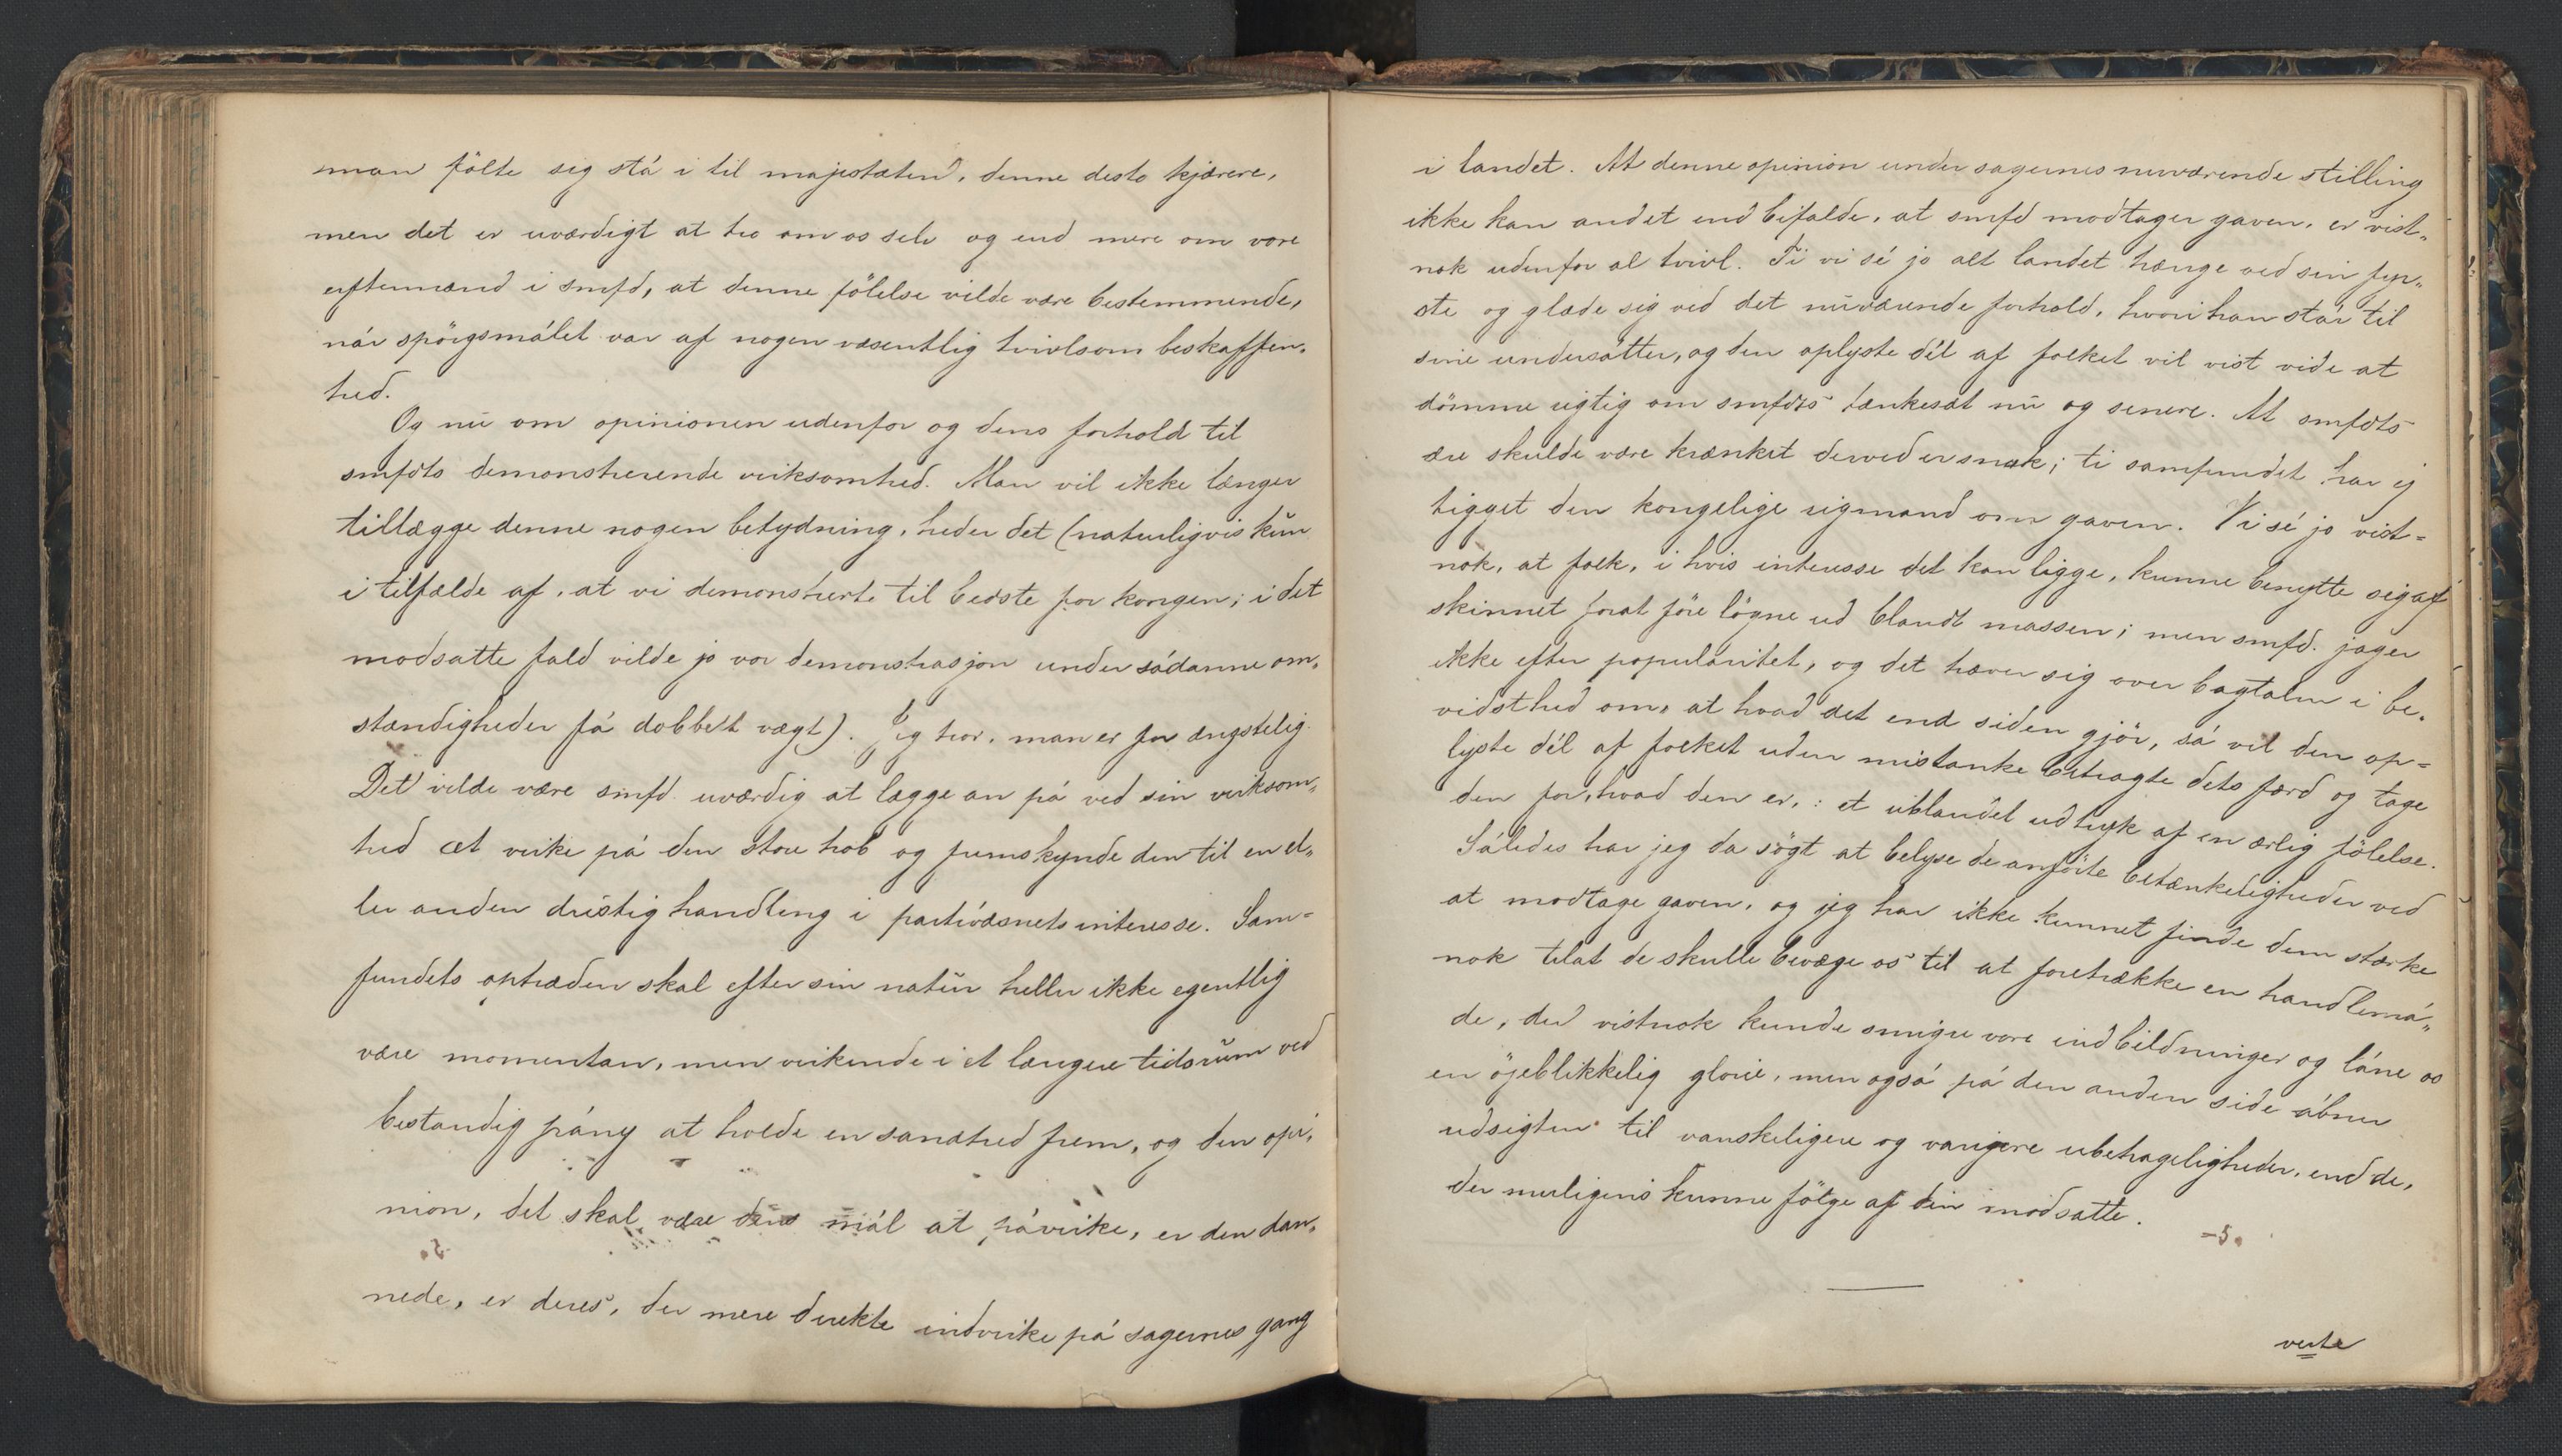 man fölte sig stå i til majestæten, denne desto kjærere,
men det er uværdigt at tro om os selv og end mere om vore
eftermænd i smfd, at denne fölelse vilde være bestemmende,
når spörgsmålet var af nogen væsentlig tvivlsom beskaffen-
hed.
Og nu om opinionen udenfor og dens forhold til
smfdts demonstrerende virksomhed. Man vil ikke længer
tillægge denne nogen betydning, heder det (naturligvis kŭn
i tilfælde af, at vi demonstrerte til bedste for kongen; i det
modsatte fald vilde jo vor demonstrasjon under sådanne om-
stændigheder få dobbelt vægt). Jeg tror, man er for ængstelig.
Det vilde være smfd. uværdig at lægge an på ved sin virksom-
hed at virke på den store hob og fremskynde den til en el-
ler anden dristig handling i partivæsnets interesse. Sam=
fundets optræden skal efter sin natŭr heller ikke egentlig
være momentan, men virkende i et længere tidsrŭm ved
bestandig påny at holde en sandhed frem, og den opi-
nion, det skal være dens mål at påvirke, er den dan-
nede, er deres, der mere direkte indvirke på sagernes gang
i landet. At denne opinion under sagernes nuværende stilling
ikke kan andet end bifalde, at smfd modtager gaven, er vist-
nok udenfor al tvivl. Ti vi sé jo alt landet hænge ved sin fyr-
ste og glæde sig ved det nŭværende forhold, hvori han står til
sine undersåtter, og den oplyste dél af folket vil vist vide at
dömme rigtig om smfdts tænkesæt nŭ og senere. At smfdts
ære skulde være krænket derved er snak; ti samfundet har ej
tigget den kongelige rigmand om gaven. Vi sé jo vist=
nok, at folk, i hvis interesse det kan ligge, kunne benytte sig af
skinnet forat före lögne ud blandt massen; men smfd. jager
ikke efter popularitet, og det hæver sig over bagtalen i be-
vidsthed om, at hvad det end siden gjör, så vil den op=
lyste dél af folket uden mistanke betragte dets færd og tage
den for, hvad den er, : et ublandet udtryk af en ærlig fölelse.
Således har jeg da sögt at belyse de anförte betænkeligheder ved
at modtage gaven, og jeg har ikke kunnet finde dem stærke
nok tilat de skulle bevæge os til at foretrække en handlemå-
de, der vistnok kunde smigre vore indbildninger og låne os
en öjeblikkelig glorie, men også på den anden side åbner
udsigten til vanskeligere og varigere ubehageligheder, end de,
der muligens kunne fölge af den modsatte.
-5.
verte